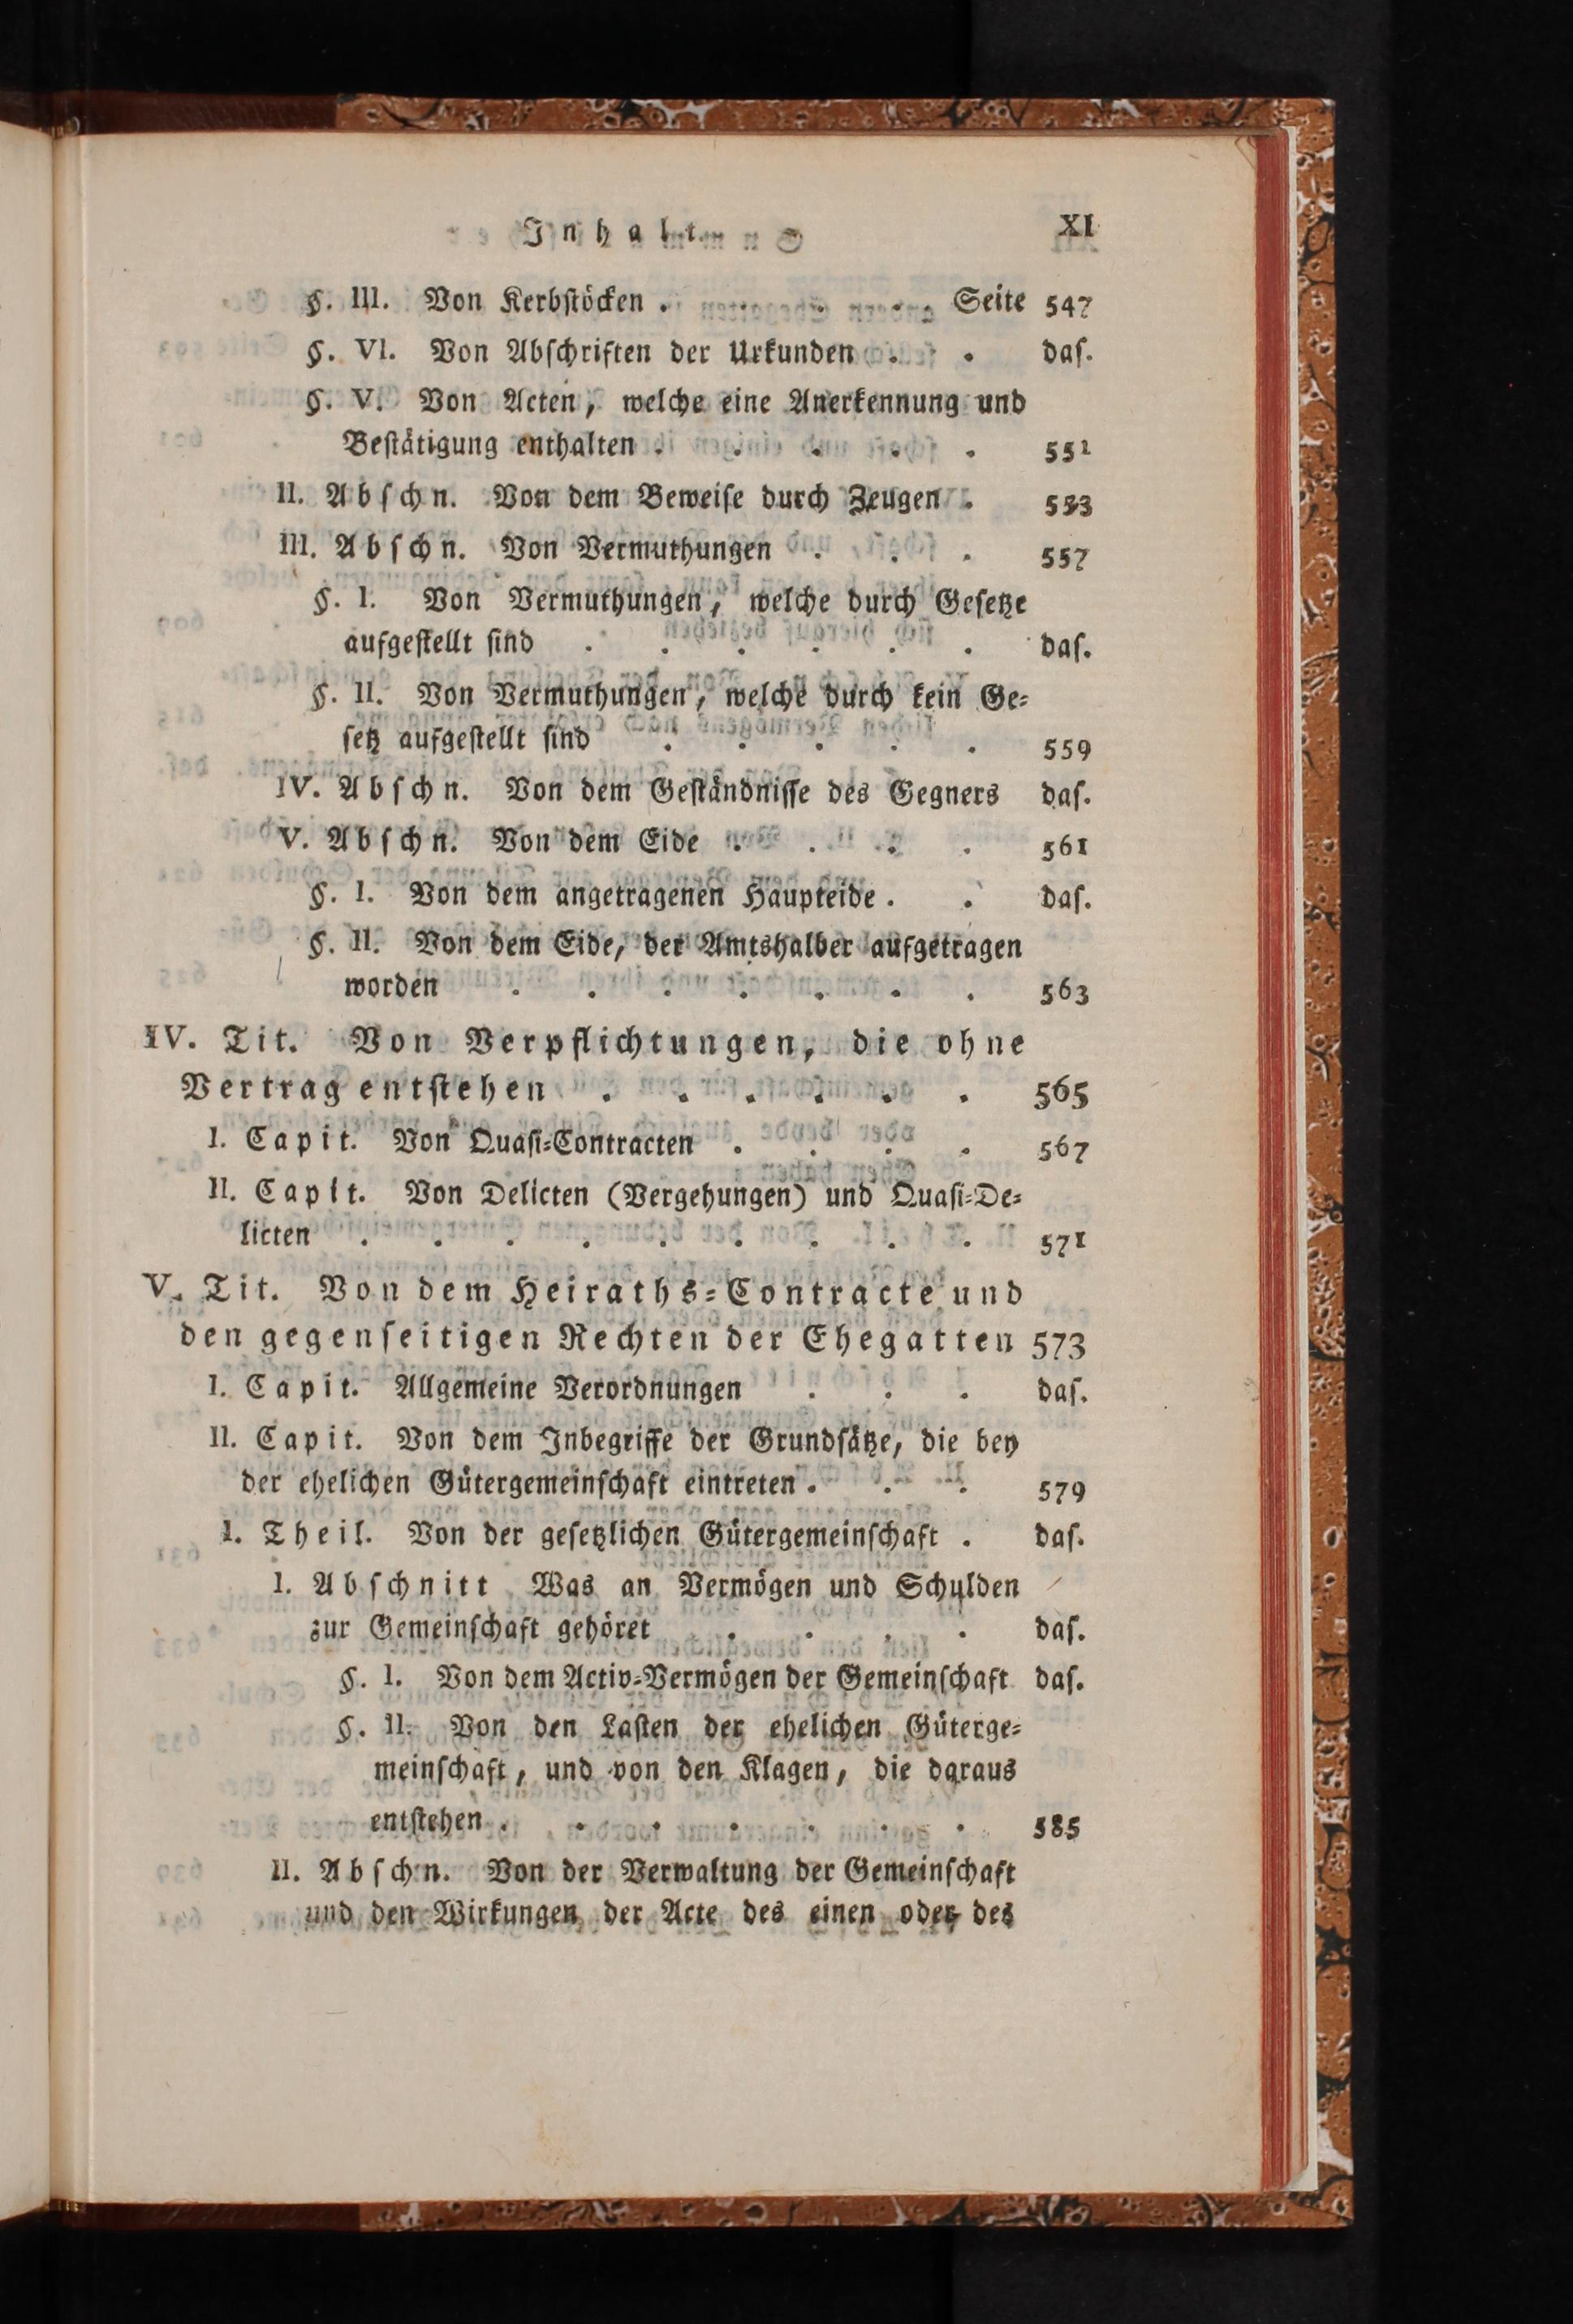 Inhalt. XI
§. III. Von Kerbſtöcken . . . Seite 547
§. VI. Von Abſchriften der Urkunden . . daſ.
§. V. Von Acten, welche eine Anerkennung und
Beſtätigung enthalten . . . . . 551
II. Abſchn. Von dem Beweiſe durch Zeugen . 553
III. Abſchn. Von Vermuthungen . . . 557
§. I. Von Vermuthungen, welche durch Geſetze
aufgeſtellt ſind . . . . . . daſ.
§. II. Von Vermuthungen, welche durch kein Ge⸗
ſetz aufgeſtellt ſind . . . . . 559
IV. Abſchn. Von dem Geſtändniſſe des Gegners daſ.
V. Abſchn. Von dem Eide . . . . 561
§. I. Von dem angetragenen Haupteide . . daſ.
§. II. Von dem Eide, der Amtshalber aufgetragen
worden . . . . . . . 563
IV. Tit. Von Verpflichtungen, die ohne
Vertrag entſtehen . . . . . . 565
I. Capit. Von Quaſi⸗Contracten . . . . 567
II. Capit. Von Delicten (Vergehungen) und Quaſi⸗De⸗
licten . . . . . . . . . 571
V. Tit. Von dem Heiraths⸗Contracte und
den gegenſeitigen Rechten der Ehegatten 573
I. Capit. Allgemeine Verordnungen . . . daſ.
II. Capit. Von dem Inbegriffe der Grundſätze, die bey
der ehelichen Gütergemeinſchaft eintreten . . . 579
I. Theil. Von der geſetzlichen Gütergemeinſchaft . daſ.
I. Abſchnitt Was an Vermögen und Schulden
zur Gemeinſchaft gehöret . . . . daſ.
§. I. Von dem Activ⸗Vermögen der Gemeinſchaft daſ.
§. II. Von den Laſten der ehelichen Güterge⸗
meinſchaft, und von den Klagen, die daraus
entſtehen . . . . . . . 585
II. Abſchn. Von der Verwaltung der Gemeinſchaft
und den Wirkungen der Acte des einen oder des